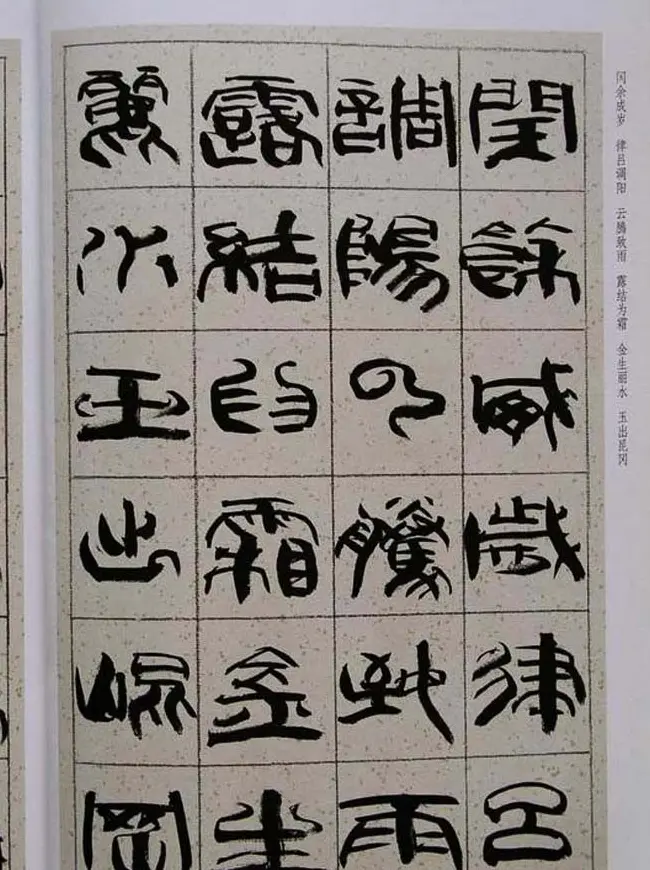 闰余成岁 律吕调阳 云腾致雨 露结为霜 金生丽水 玉出昆冈
閏餘成歲律呂
調陽云騰致雨
露結為霜金生
麗水玉出崐岡